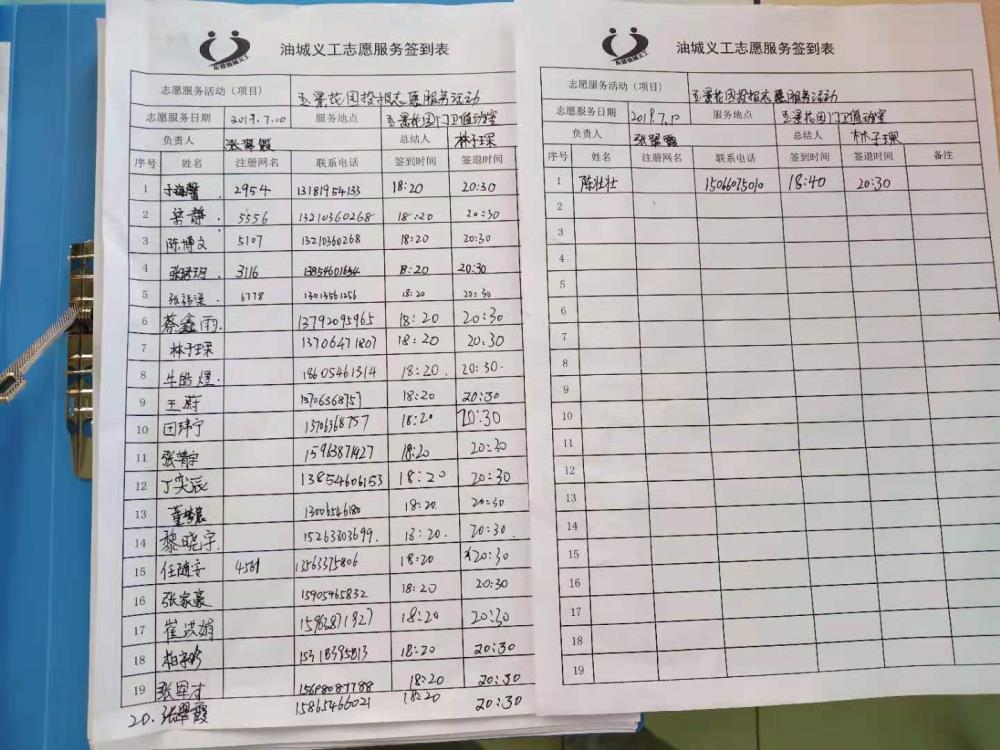 油城义工志愿服务签到表
志愿服务活动（项目） 玉景花园投报志愿服务活动
志愿服务日期 2019.7.10 服务地点 玉景花园门卫值班室
负责人 张翠霞 总结人 林子琛
序号 姓名 注册网名 联系电话 签到时间 签退时间
1 于海馨 2954 13181954133 18:20 20:30
2 宋静 5556 13210360268 18:20 20:30
3 陈博文 5107 13210360268 18:20 20:30
4 3116 13854601654 18:20 20:30
5 6778 13013561256 18:20 20:30
6 蔡鑫雨 13792095965 18:20 20:30
7 林子琛 13706471807 18:20 20:30
8 牛皓煜 18605461314 18:20 20:30
9 王蔚 13706368757 18:20 20:30
10 田玮宁 13706368757 18:20 20:30
11 张菁宇 15963871927 18:20 20:30
12 丁奕辰 13854606153 18:20 20:30
13 13006546180 18:20 20:30
14 黎晓宇 15263803699 18:20 20:30
15 任随安 4561 13563375806 18:20 20:30
16 张家豪 15905465832 18:20 20:30
17 崔洪娟 15963871927 18:20 20:30
18 15318395813 18:20 20:30
19 15698087788 18:20 20:30
20. 张翠霞 15865466021 18:20 20:30
油城义工志愿服务签到表
志愿服务活动（项目） 玉景花园投报志愿服务活动
志愿服务日期 2019.7.10 服务地点 玉景花园门卫值班室
负责人 张翠霞 总结人 林子琛
序号 姓名 注册网名 联系电话 签到时间 签退时间 备注
1 陈壮壮 15066075010 18:40 20:30
2
3
4
5
6
7
8
9
10
11
12
13
14
15
16
17
18
19